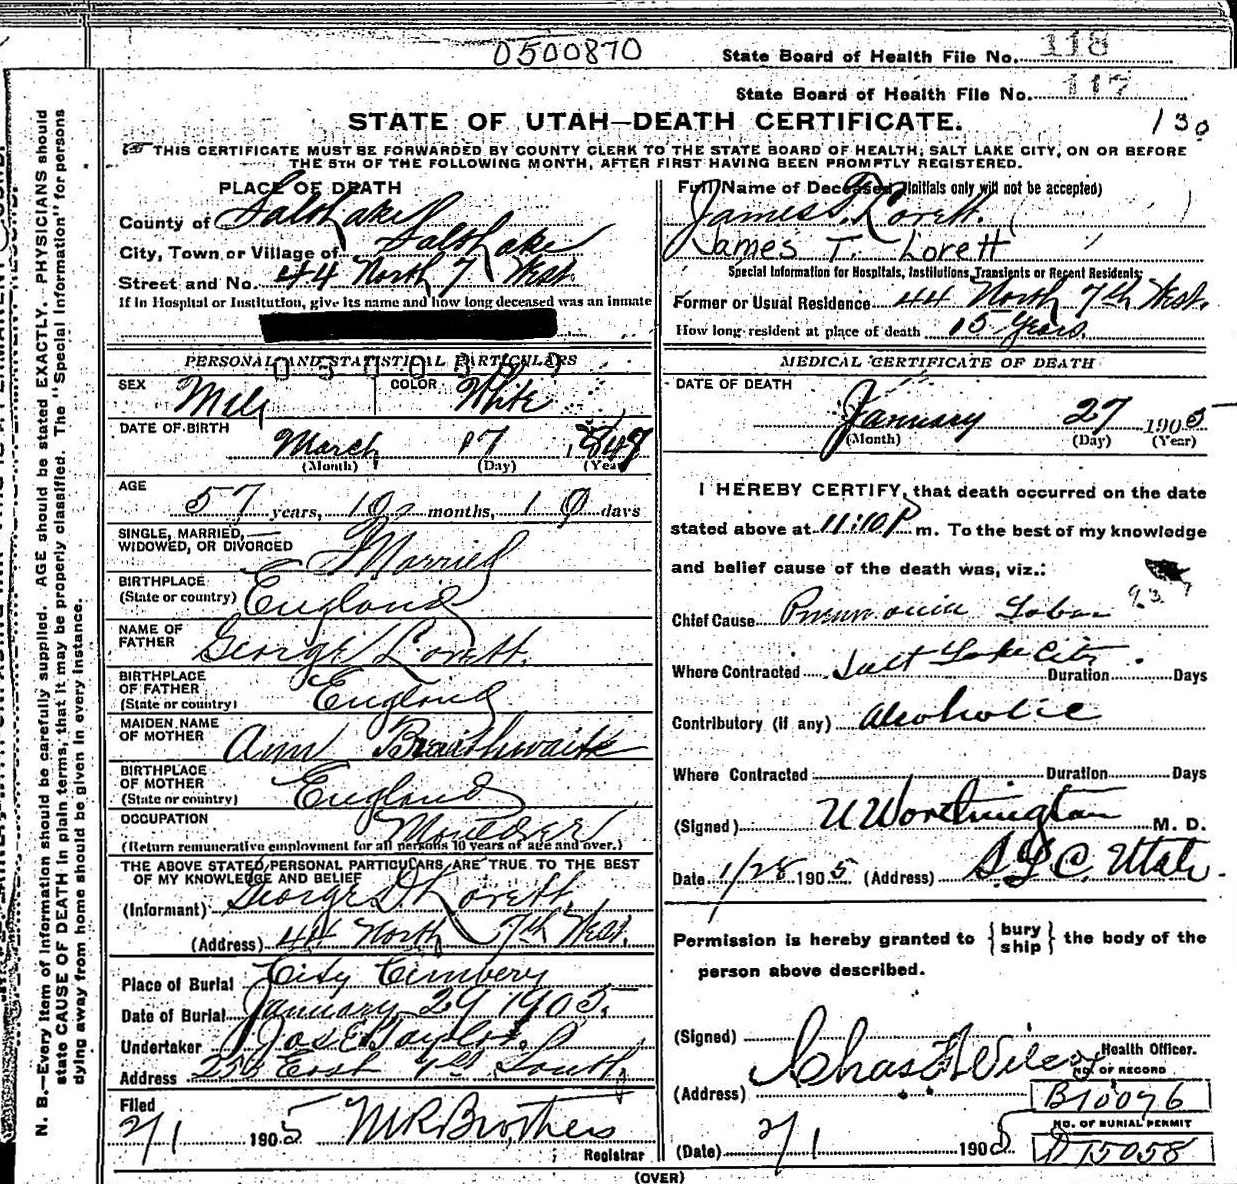 0500870
State Board of Health File No. 118
State Board of Health File No. 117
STATE OF UTAH—DEATH CERTIFICATE.
130
THIS CERTIFICATE MUST BE FORWARDED BY COUNTY CLERK TO THE STATE BOARD OF HEALTH, SALT LAKE CITY, ON OR BEFORE
THE 5TH OF THE FOLLOWING MONTH, AFTER FIRST HAVING BEEN PROMPTLY REGISTERED.
PLACE OF DEATH
County of Salt Lake
City, Town or Village of Salt Lake
Street and No. 44 North 7 West
If in Hospital or Institution, give its name and how long deceased was an inmate
PERSONAL AND STATISTICAL PARTICULARS
SEX Male COLOR White
DATE OF BIRTH March 17 1847
(Month) (Day) (Year)
AGE 57 years, 10 months, 10 days
SINGLE, MARRIED,
WIDOWED, OR DIVORCED Married
BIRTHPLACE
(State or country) England
NAME OF
FATHER George Lorett
BIRTHPLACE
OF FATHER
(State or country) England
MAIDEN NAME
OF MOTHER Ann Braithwaite
BIRTHPLACE
OF MOTHER
(State or country) England
OCCUPATION Moulder
(Return remunerative employment for all persons 10 years of age and over.)
THE ABOVE STATED PERSONAL PARTICULARS ARE TRUE TO THE BEST
OF MY KNOWLEDGE AND BELIEF
(Informant) George D Lorett
(Address) 44 North 7th West.
Place of Burial City Cemetery
Date of Burial January 29 1905.
Undertaker Jos E Taylor
Address 253 East 1st South
Filed
2/1 1905 Registrar
Full Name of Deceased (Initials only will not be accepted)
James T. Lorett.
James T. Lorett
Special Information for Hospitals, Institutions, Transients or Recent Residents:
Former or Usual Residence 44 North 7th West.
How long resident at place of death 15 Years.
MEDICAL CERTIFICATE OF DEATH
DATE OF DEATH
January 27 1905
(Month) (Day) (Year)
I HEREBY CERTIFY, that death occurred on the date
stated above at 11:10 P m. To the best of my knowledge
and belief cause of the death was, viz.:
Chief Cause Pneumonia Lobar 93
Where Contracted Salt Lake City Duration Days
Contributory (if any) Alcoholic
Where Contracted Duration Days
(Signed) U Worthington M. D.
Date 1/28 1905 (Address) S. L. C. Utah
Permission is hereby granted to { bury ship } the body of the
person above described.
(Signed) Chas F Wilcox Health Officer.
(Address)
NO. OF RECORD
B10096
NO. OF BURIAL PERMIT
D15058
(Date) 2/1 1905
(OVER)
N. B.—Every item of information should be carefully supplied. AGE should be stated EXACTLY. PHYSICIANS should
state CAUSE OF DEATH in plain terms, that it may be properly classified. The "Special Information" for persons
dying away from home should be given in every instance.